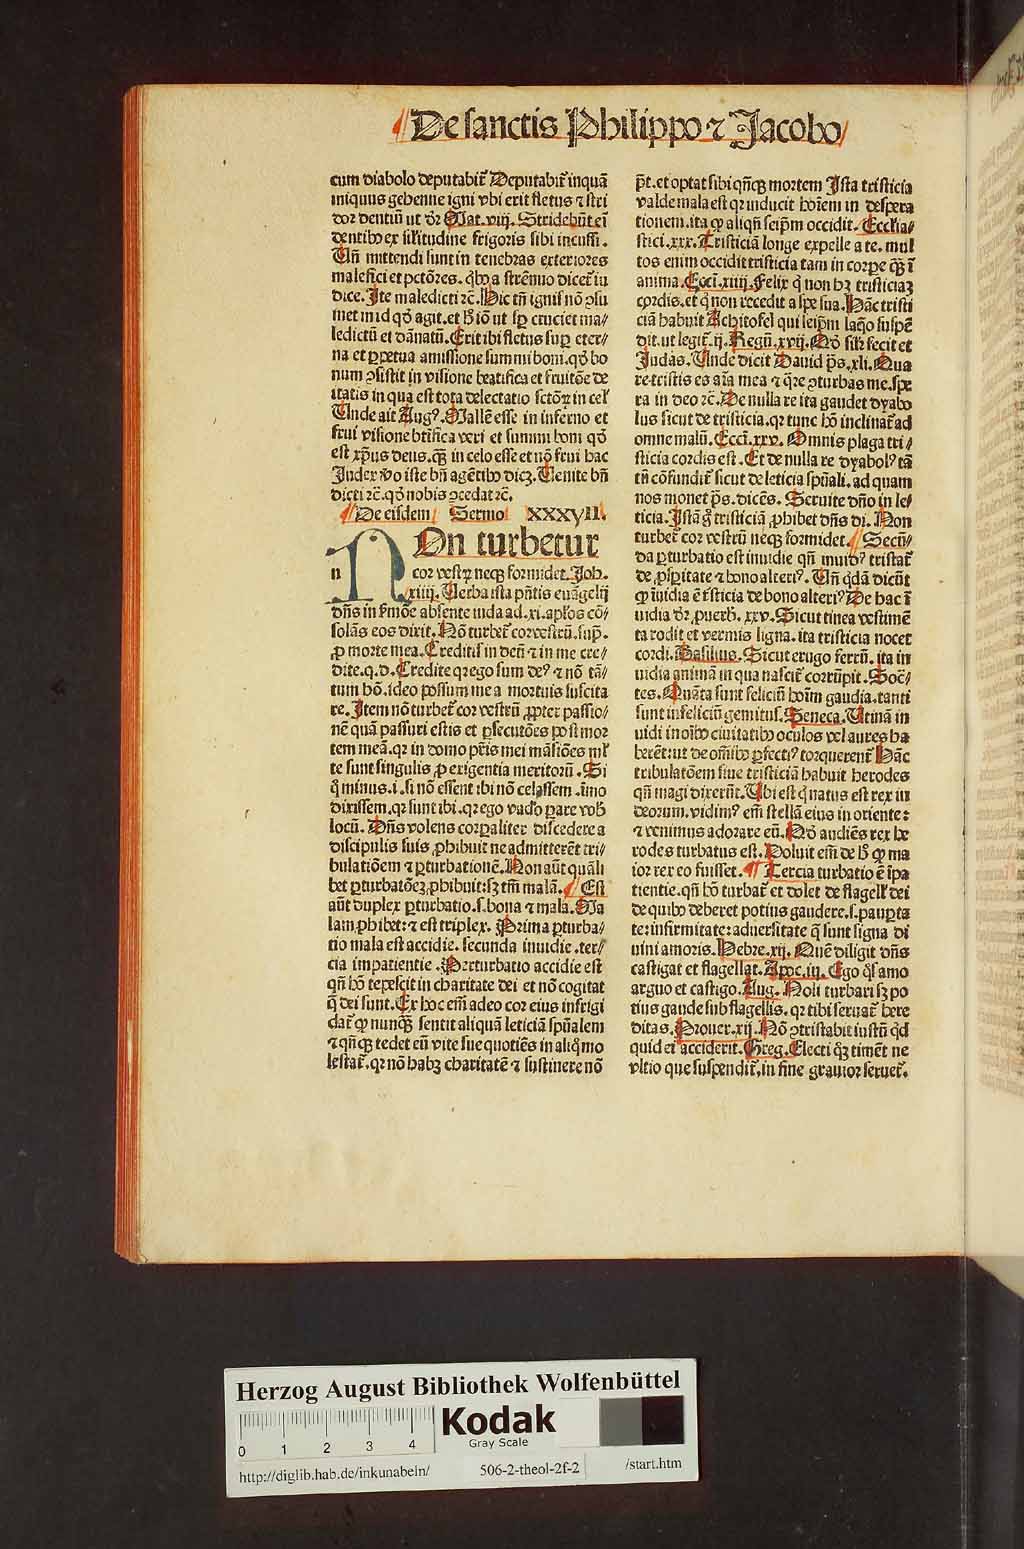 De sanctis Philippo ⁊ Jacobo
cum diabolo deputabit̃ Deputabit̃ inquã
iniquus gehenne igni vbi erit fletus ⁊ stri
dor dentiũ ut dr̃ Mat. viij. Stridebũt eĩ
dentibꝰ ex silitudine frigoris sibi incussi.
Un̄ mittendi sunt in tenebras exteriores
malefici et pctõres. qͥbꝰ a strẽnuo dicet̃ iu
dice. Ite maledicti ⁊c̃. Hic tñ ignis nõ ꝯsu
met in id qð agit. et hͦ iõ ut sꝑ cruciet ma/
ledictũ et dãnatũ. Erit ibi fletus suꝑ eter/
na et ꝑpetua amissione summi boni. qð bo
num ꝯsistit in visione beatifica et fruitiõe de
itatis in qua est tota delectatio sctõꝝ in cel̃
Unde ait Augꝰ. Mallẽ esse in inferno et
frui visione btĩfica veri et summi boni qð
est xp̃us deus. qꝫ in celo esse et nõ frui hac
Judex v̊o iste bñ agẽtibꝰ dicꝫ. Venite bñ
dicti ⁊c̃. qð nobis ꝯcedat ⁊c̃.
De eisdem Sermo xxxvii.
NOn turbetur
n cor vestꝝ neqꝫ formidet. Joh.
xiiij. Verba ista pñtis euãgelij
dñs in ẜmõe absente iuda ad .xi. apl̃os cõ/
solãs eos dixit. Nõ turbet̃ cor vestrũ. sup̃.
ꝓ morte mea. Creditis in deũ ⁊ in me cre/
dite. q.d. Credite qꝛ ego sum deꝰ ⁊ nõ tã/
tum hõ. ideo possum me a mortuis suscita
re. Item nõ turbet̃ cor vestrũ ꝓpter passio/
nẽ quã passuri estis et ꝑsecutões post mor
tem meã. qꝛ in domo pr̃is mei mãsiões ml̃
te sunt singulis ꝓ exigentia meritorũ. Si
qͦ minus. i. si nõ essent ibi nõ celassem. imo
dixissem. qꝛ sunt ibi. qꝛ ego vado ꝑare vob̃
locũ. Dñs volens corꝑaliter discedere a
discipulis suis ꝓhibuit ne admitterẽt tri/
bulatiõem ⁊ ꝑturbationẽ. Non aũt quãli
bet ꝑturbatõeꝫ ꝓhibuit: sꝫ tm̃ malã. Est
aũt duplex ꝑturbatio. s. bona ⁊ mala. Ma
lam ꝓhibet: ⁊ est triplex. Prima ꝑturba/
tio mala est accidie. secunda inuidie. ter/
cia impatientie. Perturbatio accidie est
qñ hõ tepescit in charitate dei et nõ cogitat
q̃ dei sunt. Ex hoc em̃ adeo cor eius infrigi
dat̃ ꝙ nunqꝫ sentit aliquã leticiã spũalem
⁊ qñqꝫ tedet eũ vite sue quotiẽs in aliqͦ mo
lestat̃. qꝛ nõ habꝫ charitatẽ ⁊ sustinere nõ
põt. et optat sibi qñqꝫ mortem Ista tristicia
valde mala est qꝛ inducit hoĩem in despera
tionem. ita ꝙ aliqñ seip̃m occidit. Ecclia/
stici .xxx. Tristiciã longe expelle a te. mul
tos enim occidit tristicia tam in corꝑe qꝫ ĩ
anima. Ecci. xiiij. Felix q̃ non hꝫ tristiciaꝫ
cordis. et q̃ non recedit a spe sua. Hãc tristi
ciã habuit Achitofel qui seip̃m laqͦo suspẽ
dit. ut legit̃ .ij. Regũ. xvij. Qð sil̃r fecit et
Judas. Unde dicit Dauid ps̃. xli. Qua
re tristis es aĩa mea ⁊ qͣre ꝯturbas me. spe
ra in deo ⁊c̃. De nulla re ita gaudet dyabo
lus sicut de tristicia. qꝛ tunc hõ inclinat̃ ad
omne malũ. Ecci. xxv. Omnis plaga tri/
sticia cordis est. Et de nulla re dyabolꝰ tã
tũ cõfundit̃ sicut de leticia spũali. ad quam
nos monet ps̃. dicẽs. Seruite dño in le/
ticia. Istã gͦ tristiciã ꝓhibet dñs di. Non
turbet̃ cor vestrũ neqꝫ formidet. Secũ/
da ꝑturbatio est inuidie qñ inuidꝰ tristat̃
de ꝓsꝑitate ⁊ bono alteriꝰ. Un̄ qͥdã dicũt
ꝙ ĩuidia ẽ tristicia de bono alteriꝰ De hac ĩ
uidia dr̃ ꝓuerb̃. xxv. Sicut tinea vestimẽ
ta rodit et vermis ligna. ita tristicia nocet
cordi. Basilius. Sicut erugo ferrũ. ita in
uidia animã in qua nascit̃ corrũpit. Socͣ/
tes. Quãta sunt feliciũ hoĩm gaudia. tanti
sunt infeliciũ gemitus. Seneca. Utinã in
uidi in oĩbꝰ ciuitatibꝰ oculos vel aures ha
berẽt: ut de om̃ibꝰ ꝑfectiꝰ torquerent̃ Hãc
tribulatõem siue tristiciã habuit herodes
qñ magi dixerũt. Ubi est q̃ natus est rex iu
deorum. vidimꝰ em̃ stellã eius in oriente:
⁊ venimus adorare eũ. Qð audiẽs rex he
rodes turbatus est. Noluit em̃ de hͦ ꝙ ma
ior rex eo fuisset. Tercia turbatio ẽ ĩpa
tientie. qñ hõ turbat̃ et dolet de flagell̃ dei
de quibꝰ deberet potius gaudere. s. pauꝑta
te: infirmitate: aduersitate q̃ sunt signa di
uini amoris. Hebre. xij. Quẽ diligit dñs
castigat et flagellat. Apoc. iij. Ego q̃s amo
arguo et castigo. Aug. Noli turbari sꝫ po
tius gaude sub flagellis. qꝛ tibi seruat̃ here
ditas. Prouer. xij. Nõ ꝯtristabit iustũ qͥd
quid ei acciderit. Greg. Electi qͥꝫ timẽt ne
vltio que suspendit̃, in fine grauior seruet̃.
Herzog August Bibliothek Wolfenbüttel
0 1 2 3 4
Kodak
Gray Scale
http://diglib.hab.de/inkunabeln/ 506-2-theol-2f-2 /start.htm